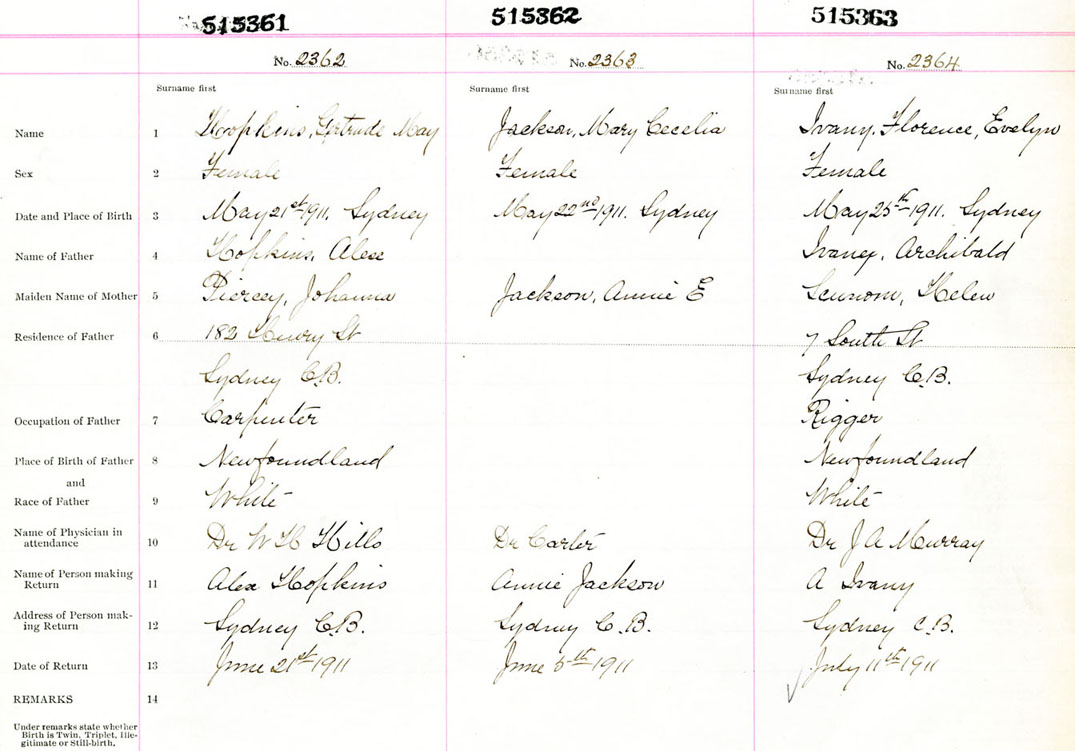 515361 515362 515363
No. 2362 No. 2363 No. 2364
Surname first Surname first Surname first
Name 1 Hopkins, Gertrude May Jackson, Mary Cecelia Ivany, Florence, Evelyn
Sex 2 Female Female Female
Date and Place of Birth 3 May 21st 1911. Sydney May 22nd 1911. Sydney May 25th 1911. Sydney
Name of Father 4 Hopkins, Alex Ivany, Archibald
Maiden Name of Mother 5 Piercey, Johanna Jackson, Annie E Helen
Residence of Father 6 182 Henry St 7 South St
Sydney C.B. Sydney C.B.
Occupation of Father 7 Carpenter Rigger
Place of Birth of Father 8 Newfoundland Newfoundland
and
Race of Father 9 White White
Name of Physician in
attendance 10 Dr W H Hills Dr Carter Dr J A Murray
Name of Person making
Return 11 Alex Hopkins Annie Jackson A Ivany
Address of Person mak-
ing Return 12 Sydney C.B. Sydney C.B. Sydney C.B.
Date of Return 13 June 21st 1911 June 5th 1911 July 11th 1911
REMARKS 14
Under remarks state whether
Birth is Twin, Triplet, Ille-
gitimate or Still-birth.